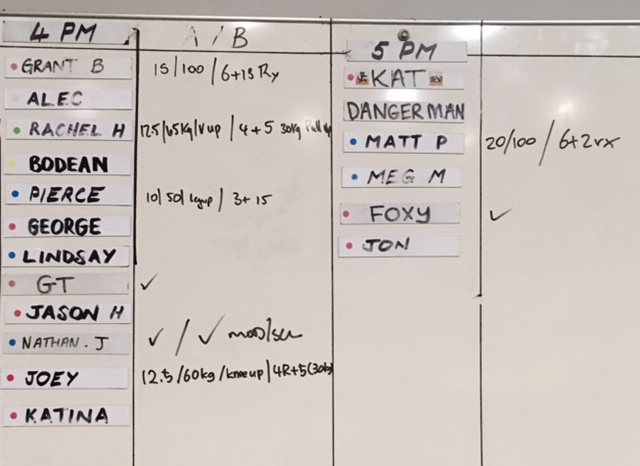 4 PM A / B
GRANT B 15/100 / 6+13 Rx
ALEC
RACHEL H 12.5/65kg/vup / 4+5 30kg Pull up
BODEAN
PIERCE 10/50/ legup / 3+15
GEORGE
LINDSAY
GT ✓
JASON H
NATHAN. J ✓ / ✓ mod/
JOEY 12.5/60kg/kneeup/4R+5
KATINA
5 PM
KAT
DANGERMAN
MATT P 20/100 / 6+2 rx
MEG M
FOXY ✓
JON